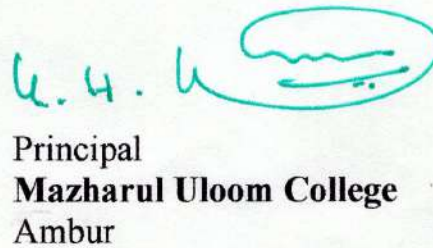 Principal
Mazharul Uloom College
Ambur